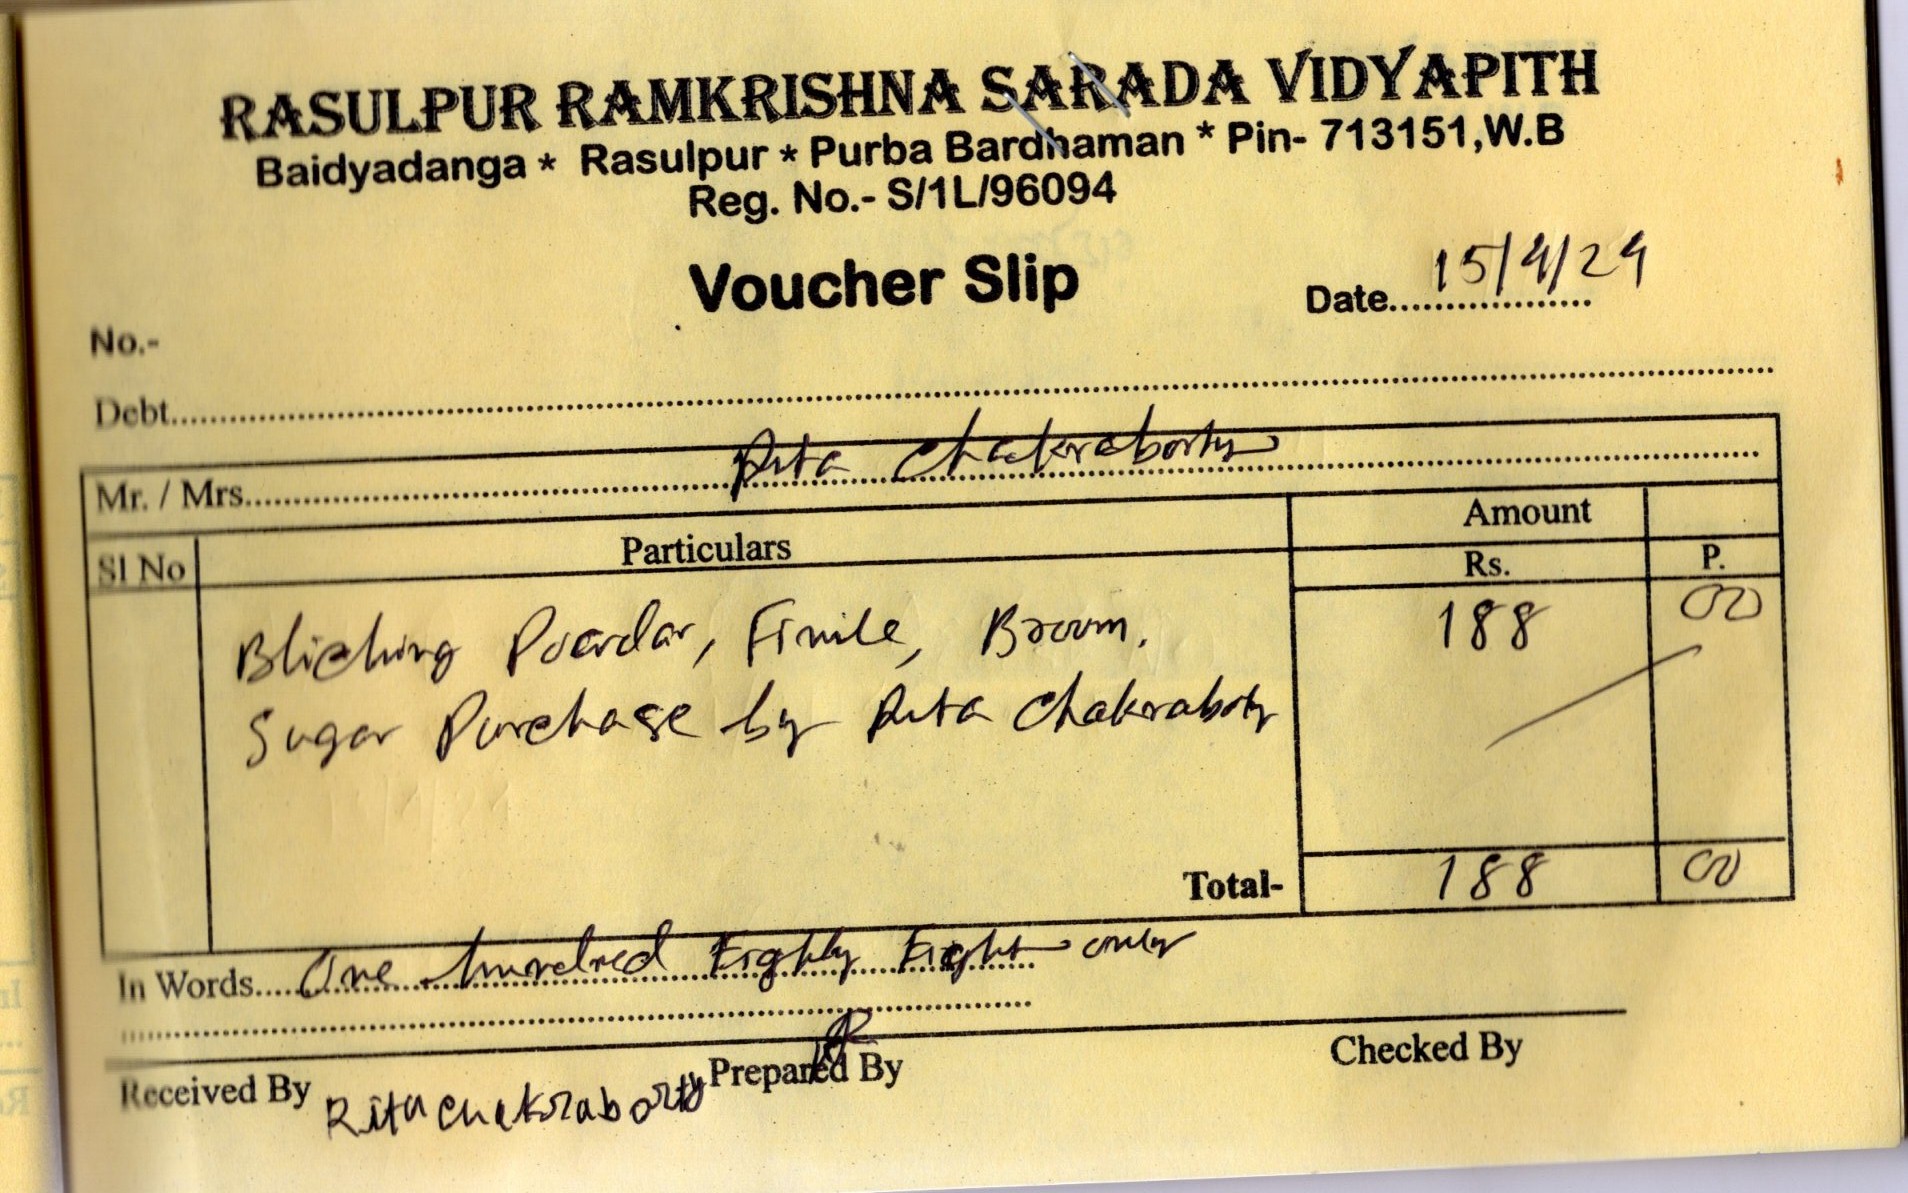 RASULPUR RAMKRISHNA SARADA VIDYAPITH
Baidyadanga * Rasulpur * Purba Bardhaman * Pin- 713151,W.B
Reg. No.- S/1L/96094
Voucher Slip
Date.................. 15/4/24
No.-
Debt
Mr. / Mrs. Rita Chakraborty
Sl No Particulars Amount
Rs. P.
Bliching Powdar, Finile, Broom, 188 00
Sugar Purchase by Rita Chakraborty
Total- 188 00
In Words One hundred Eighty Eight only
Received By Rita Chakraborty Prepared By Checked By